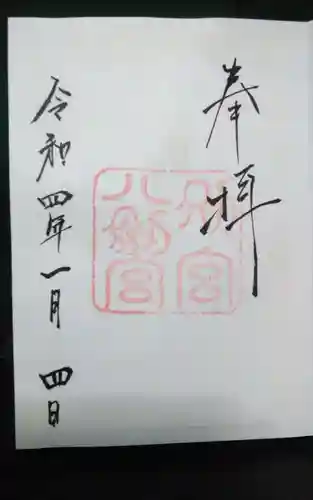 奉拝
八剱宮
令和四年一月四日